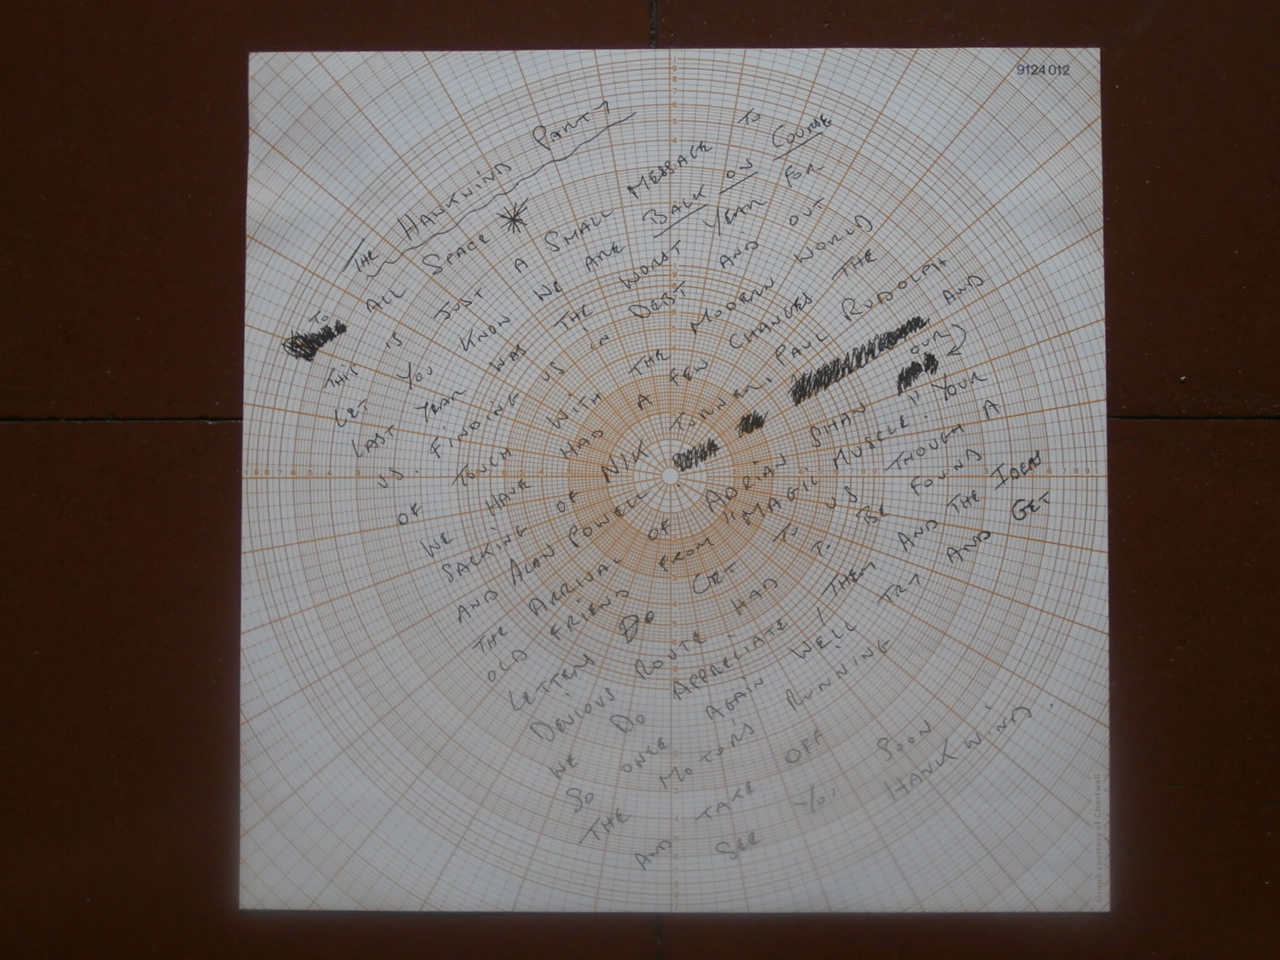 9124 012
THE HAWKWIND PART 1
TO ALL SPACE
THIS IS JUST A SMALL MESSAGE TO
LET YOU KNOW WE ARE BACK ON COURSE
LAST YEAR WAS THE WORST YEAR FOR
US. FINDING US IN DEBT AND OUT
OF TOUCH WITH THE MODERN WORLD
WE HAVE HAD A FEW CHANGES THE
SACKING OF NIK TURNER, PAUL RUDOLPH
AND ALAN POWELL AND
THE ARRIVAL OF ADRIAN SHAW OUR
OLD FRIEND FROM "MAGIC MUSCLE". YOUR
LETTERS DO GET TO US THOUGH A
DEVIOUS ROUTE HAD TO BE FOUND
WE DO APPRECIATE THEM AND THE IDEAS
SO ONCE AGAIN WE'LL TRY AND GET
THE MOTORS RUNNING
AND TAKE OFF
SEE YOU SOON
HAWKWIND.
Graph courtesy of Chartwell